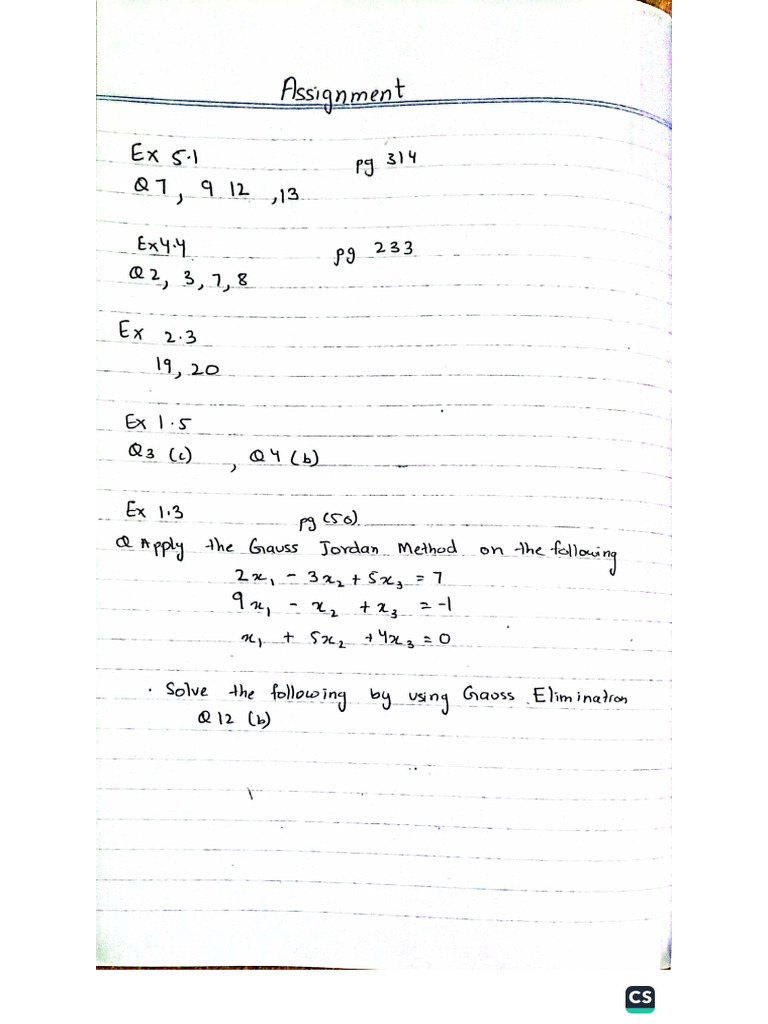 Assignment
Ex 5.1 pg 314
Q7, 9 12 ,13
Ex4.4 pg 233
Q2, 3, 7, 8
Ex 2.3
19, 20
Ex 1.5
Q3 (c) , Q4 (b)
Ex 1.3 pg (50)
Q Apply the Gauss Jordan Method on the following
2x₁ - 3x₂ + 5x₃ = 7
9x₁ - x₂ + x₃ = -1
x₁ + 5x₂ + 4x₃ = 0
. Solve the following by using Gauss Elimination
Q12 (b)
CS